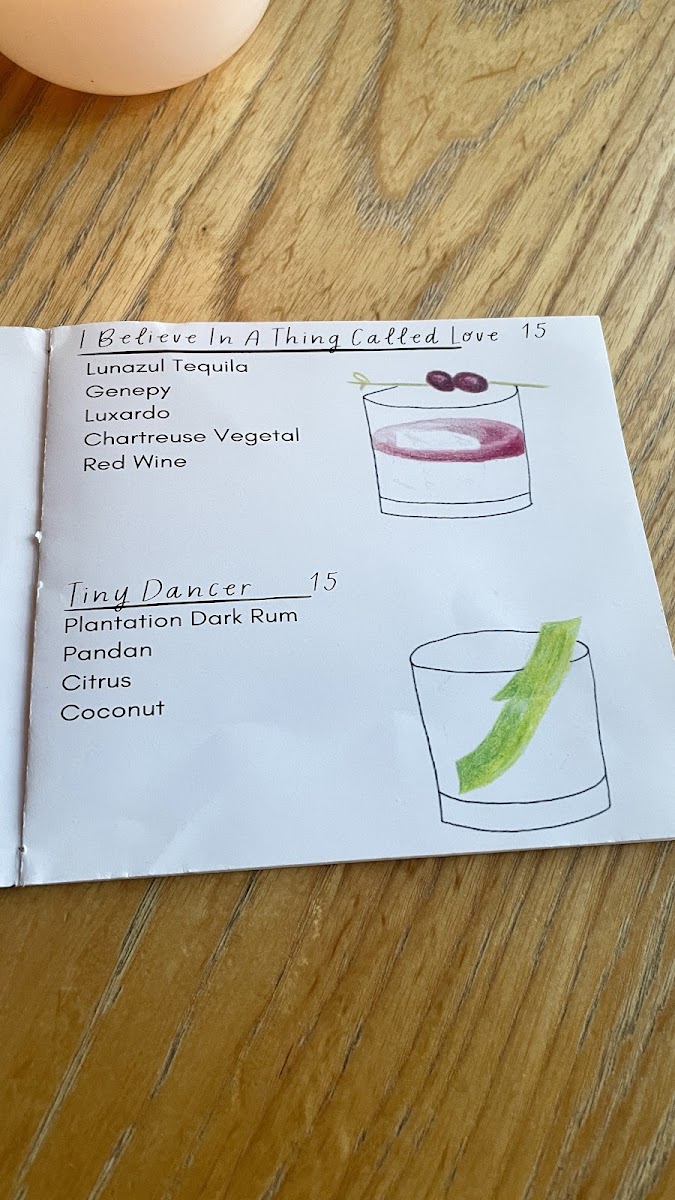 I Believe In A Thing Called Love 15
Lunazul Tequila
Genepy
Luxardo
Chartreuse Vegetal
Red Wine
Tiny Dancer 15
Plantation Dark Rum
Pandan
Citrus
Coconut